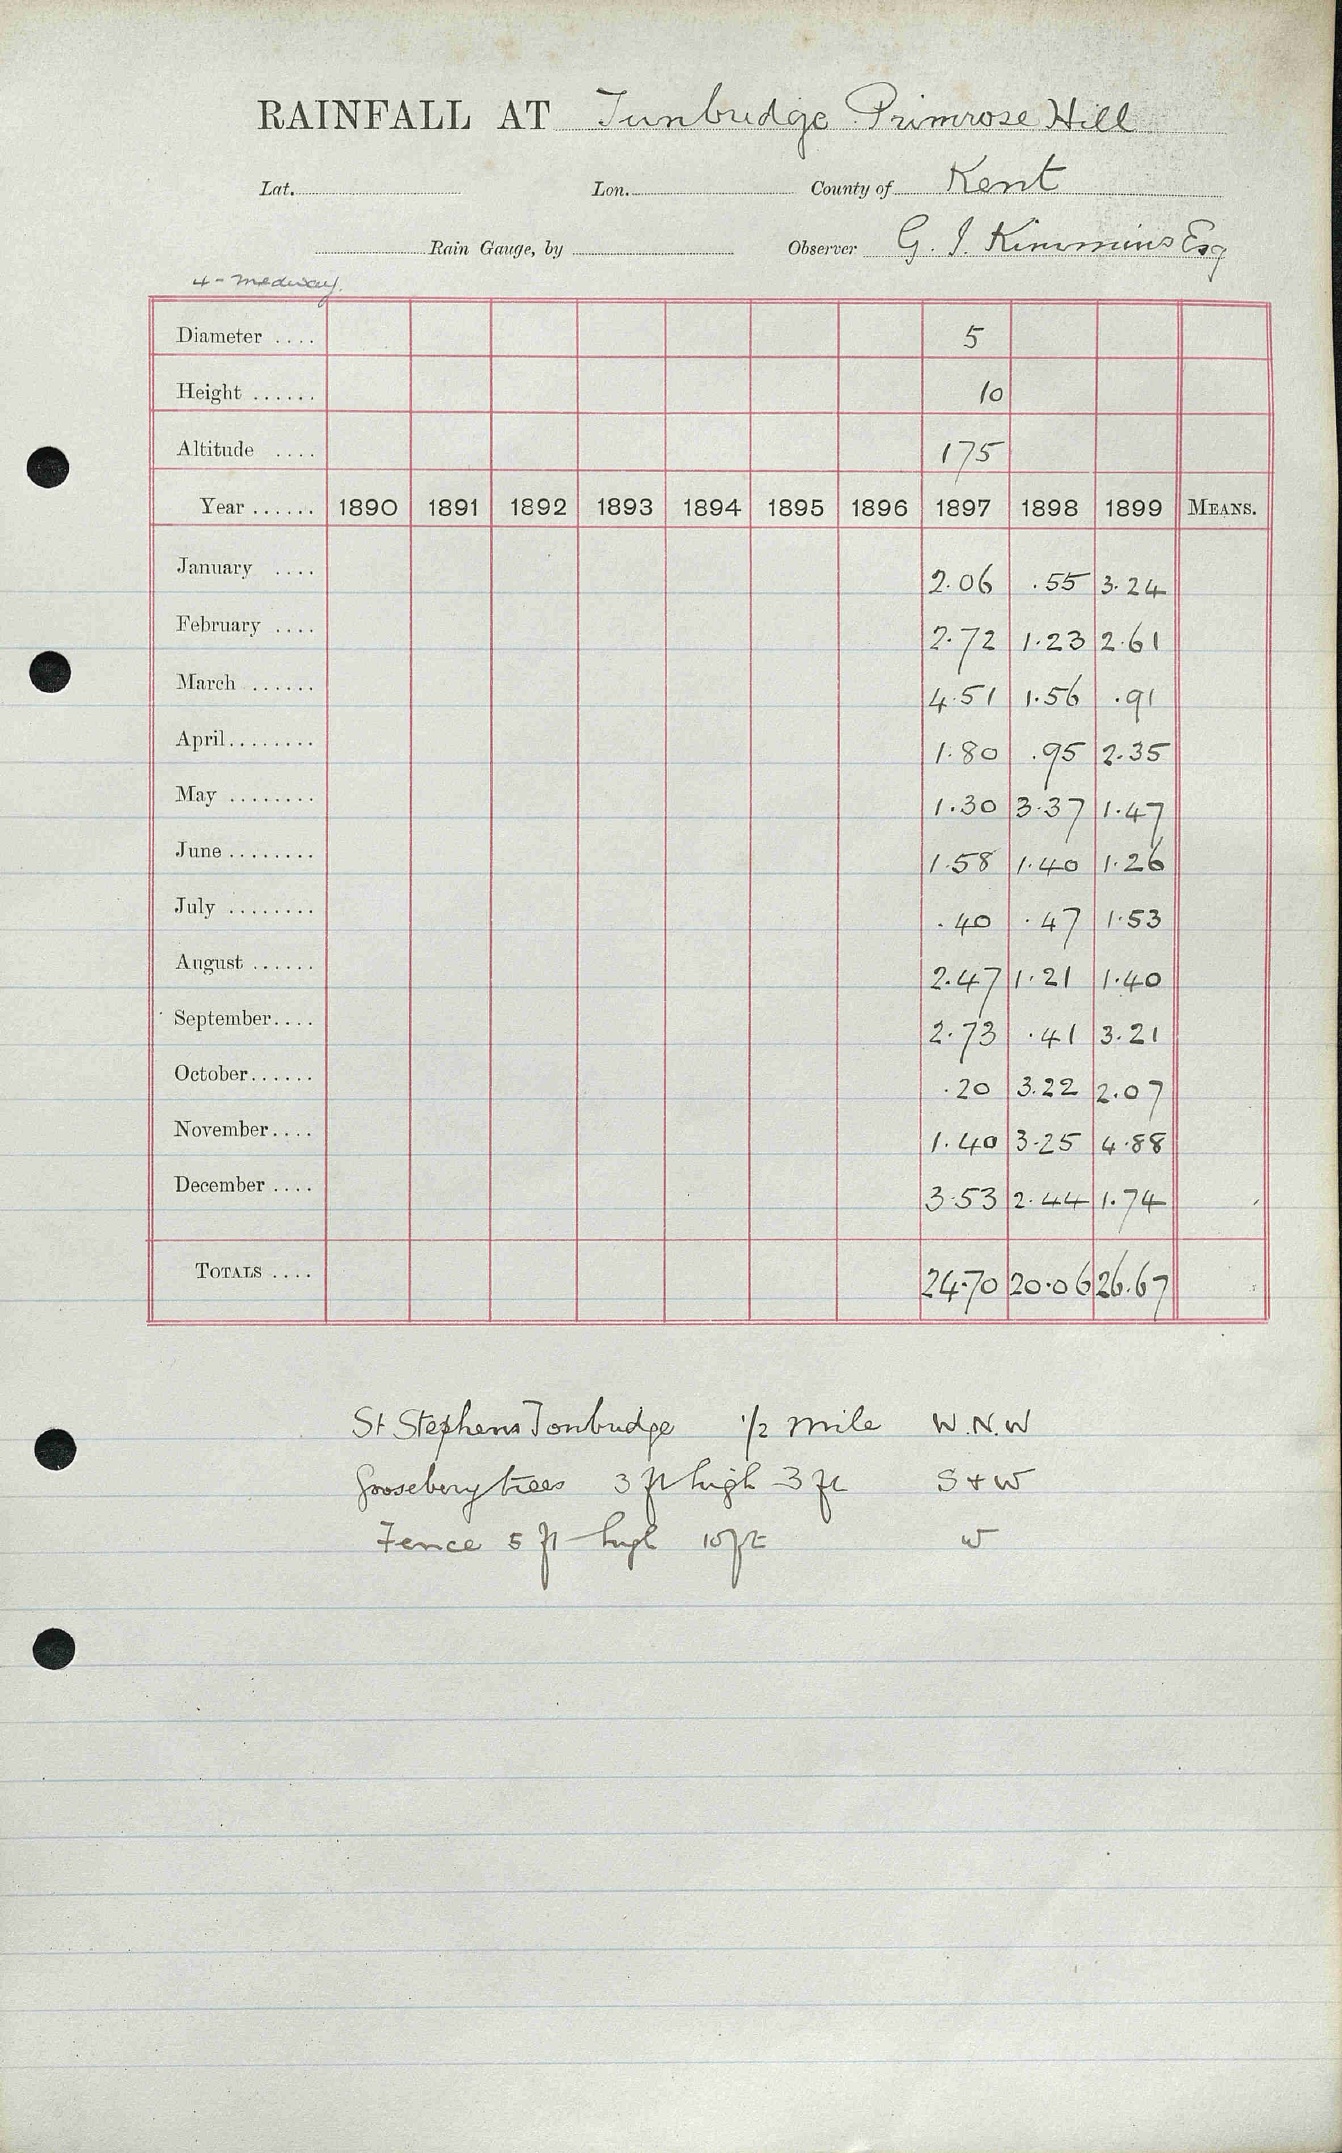 RAINFALL AT Tunbridge Primrose Hill
Lat. Lon. County of Kent
Rain Gauge, by Observer G. J. Kimmins Esq
4 - Medway.
Diameter .... 5
Height ...... 10
Altitude .... 175
Year ...... 1890 1891 1892 1893 1894 1895 1896 1897 1898 1899 MEANS.
January .... 2.06 .55 3.24
February .... 2.72 1.23 2.61
March ...... 4.51 1.56 .91
April........ 1.80 .95 2.35
May ........ 1.30 3.37 1.47
June ........ 1.58 1.40 1.26
July ........ .40 .47 1.53
August ...... 2.47 1.21 1.40
September.... 2.73 .41 3.21
October...... .20 3.22 2.07
November.... 1.40 3.25 4.88
December .... 3.53 2.44 1.74
TOTALS .... 24.70 20.06 26.67
St Stephens Tonbudge 1/2 mile W.N.W
Gooseberry trees 3 ft high 3 ft S + W
Fence 5 ft high 10 ft W